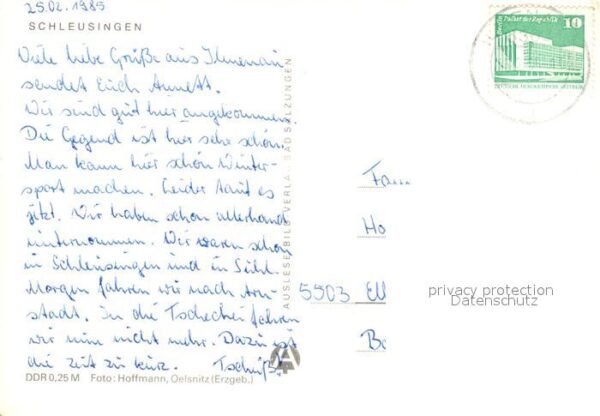 25.02.1989
SCHLEUSINGEN
Viele liebe Grüße aus Ilmenau
sendet Euch Annett.
Wir sind gut hier angekommen.
Die Gegend ist hier sehr schön.
Man kann hier schön Winter-
sport machen. Leider taut es
jetzt. Wir haben schon allerhand
unternommen. Wir waren schon
in Schleusingen und in Suhl.
Morgen fahren wir nach Arn-
stadt. In die Tschechei fahren
wir nun nicht mehr. Dazu ist
die Zeit zu kurz. Tschüß!
DDR 0,25 M Foto: Hoffmann, Oelsnitz (Erzgeb.)
AUSLESE-BILD-VERLAG BAD SALZUNGEN
Berlin, Palast der Republik
10
DEUTSCHE DEMOKRATISCHE REPUBLIK
Fam
Ho
5903 Ell
privacy protection
Datenschutz